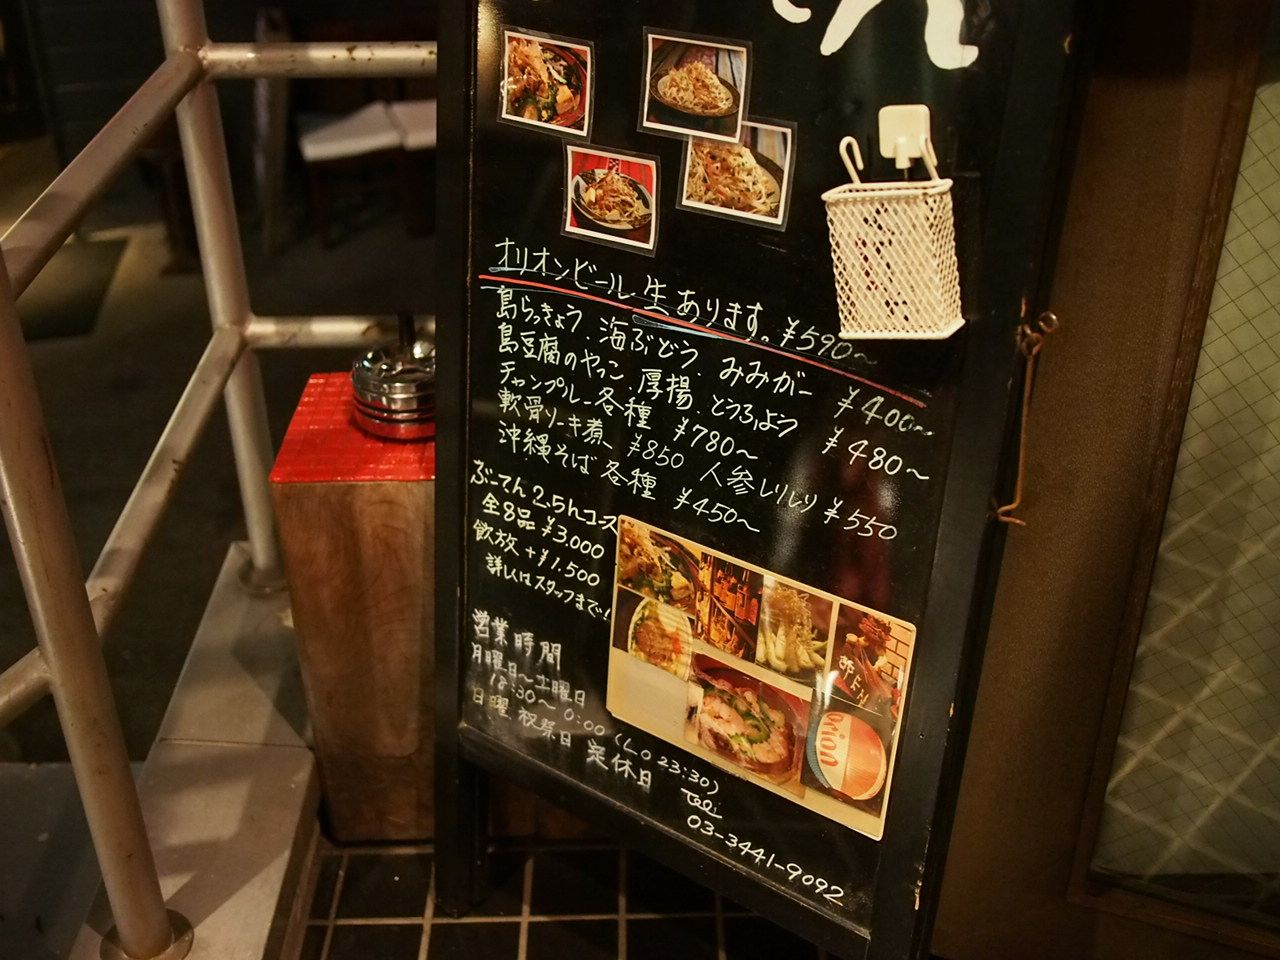 オリオンビール生あります。¥590～
島らっきょう、海ぶどう、みみガー ¥400～
島豆腐のやっこ、厚揚、とうふよう ¥480～
チャンプルー各種 ¥780～
軟骨ソーキ煮 ¥850 人参しりしり ¥550
沖縄そば各種 ¥450～
ぶーてん2.5hコース
全8品 ¥3.000
飲放 +¥1.500
詳しくはスタッフまで!
営業時間
月曜日～土曜日
18:30～0:00 (L.O 23:30)
日曜 祝祭日 定休日
Tel:
03-3441-9092
orion